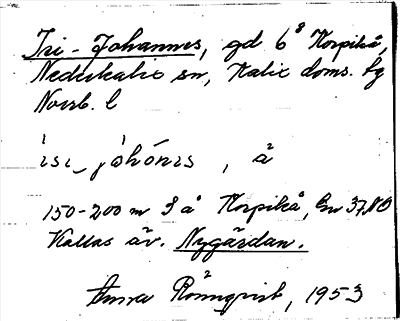 Isi-Johannes, gd 6⁸ Korpikå,
Nederkalix sn, Kalix doms. fg
Norrb. l
ɩsɩ_jòhónɩs , å²
150-200 m S å Korpikå, Gu 37 NO
Kallas äv. Nygårdan.
Anna Rönnqvist, 1953